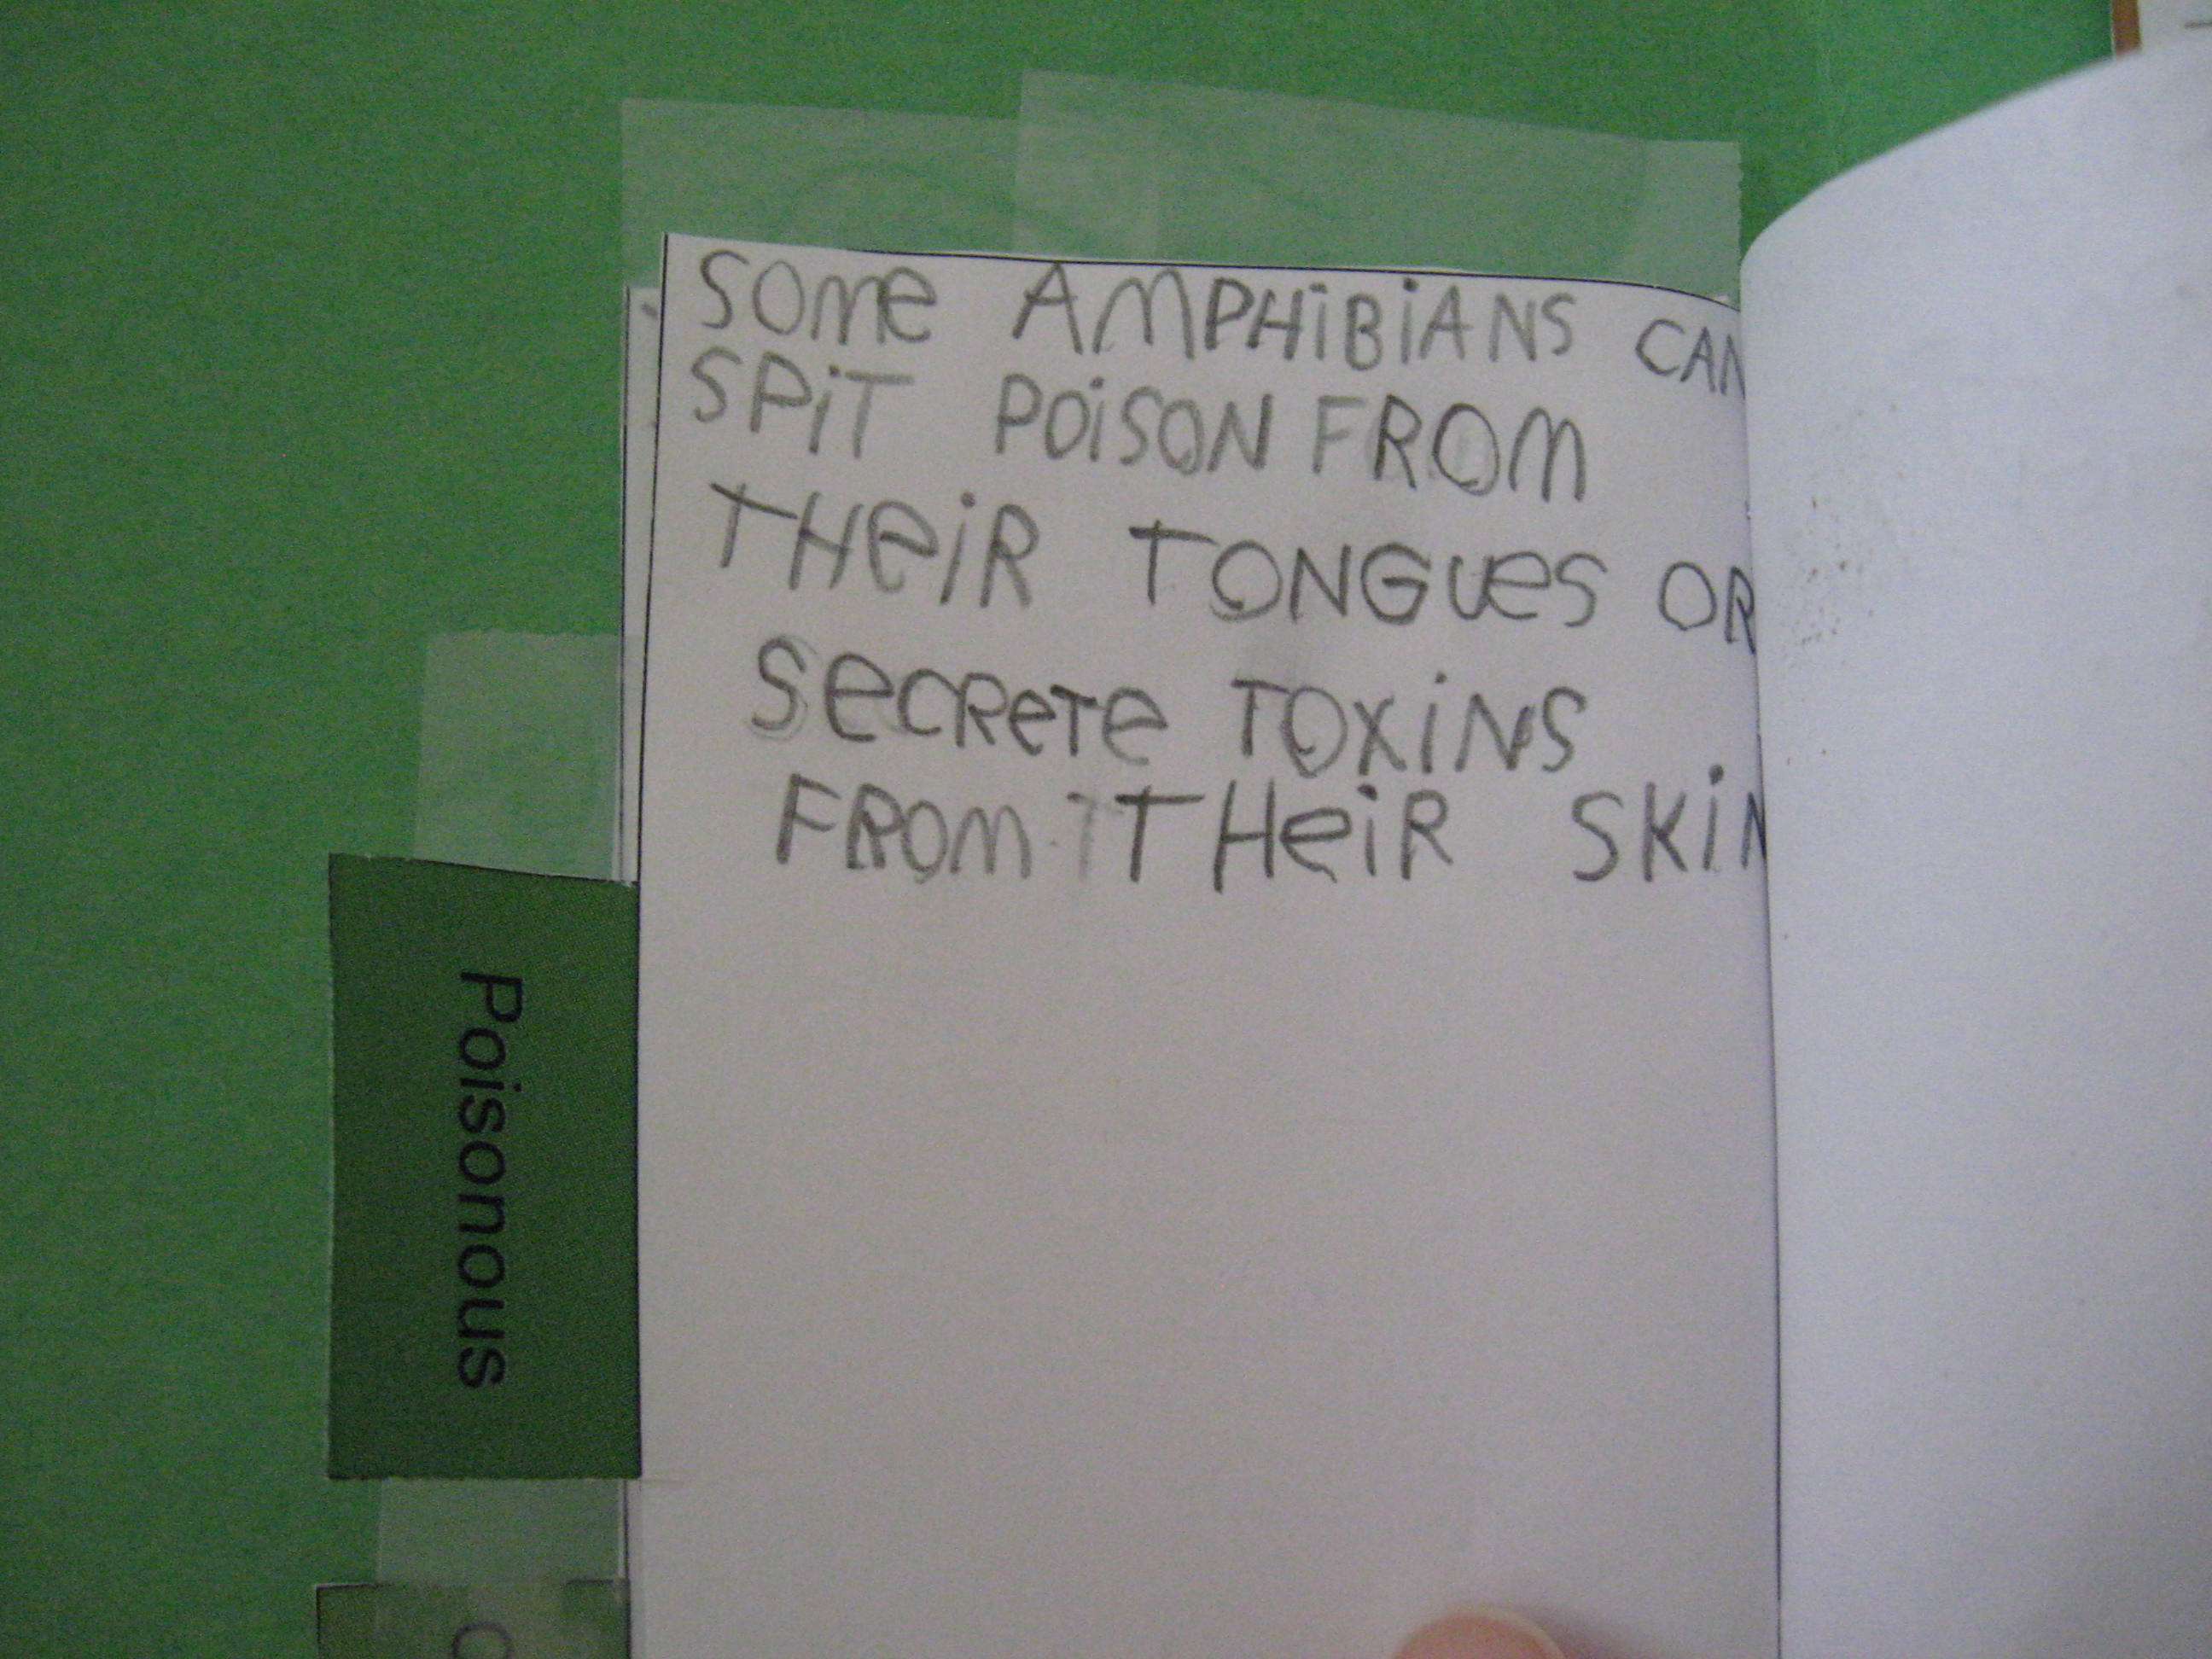 SOMe AMPHiBiANS CAN
SPiT POiSON FROM
THeiR TONGUeS OR
SeCReTe TOXiNS
FROM THeiR SKiN
Poisonous